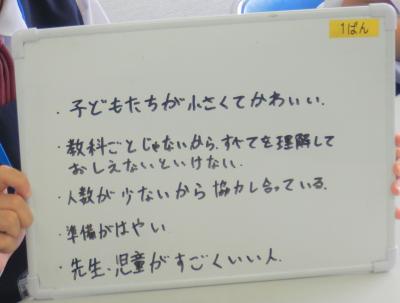 1ぱん
・子どもたちが小さくてかわいい.
・教科ごとじゃないから、すべてを理解して
おしえないといけない.
・人数が少ないから協力し合っている.
・準備がはやい
・先生、児童がすごくいい人.